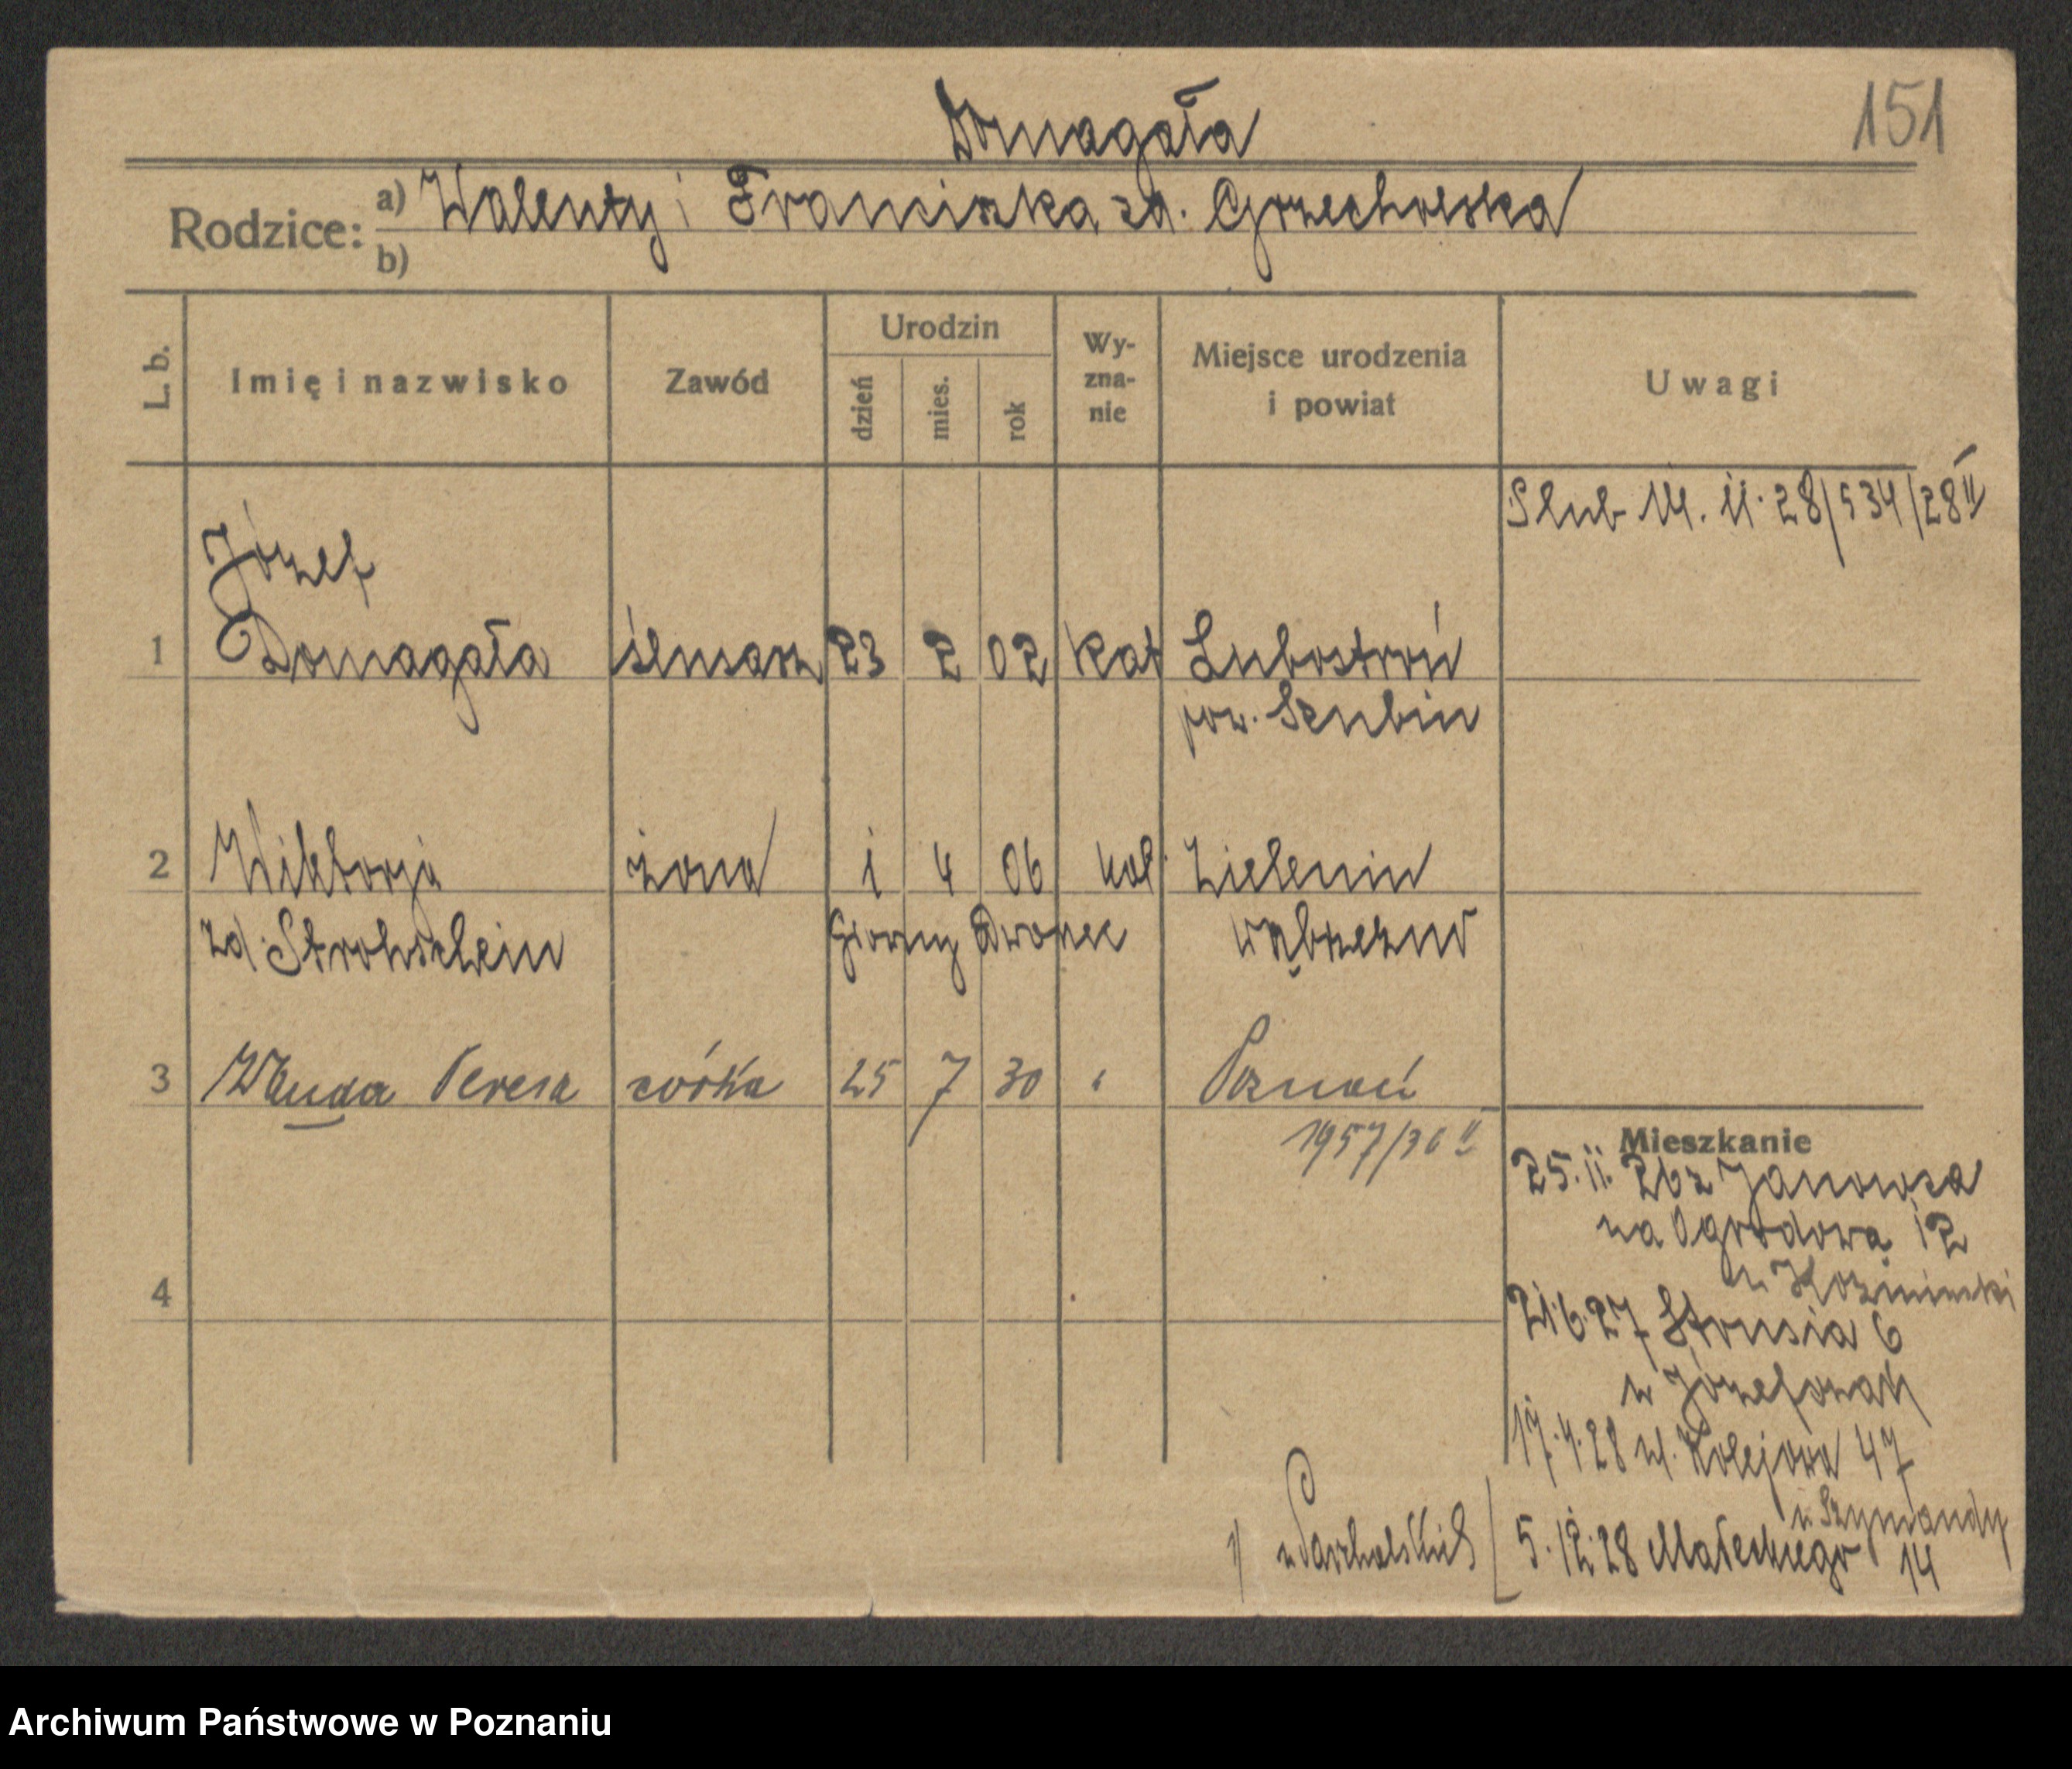 Domagała
151
Rodzice: a) Walenty i Franciszka zd. Grzechowska
b)
L. b.
Imię i nazwisko
Zawód
Urodzin
dzień
mies.
rok
Wy-
zna-
nie
Miejsce urodzenia
i powiat
Uwagi
Slub 14. 11. 28/534/28 II
Józef
1 Domagała ślusarz 23 2 02 kat Lubostroń
pow. Szubin
2 Wiktorja żona 1 4 06 kat. Zieleniu
zd. Strohschein Dworzec Wąbrzeźno
3 Wanda Teresa córka 25 7 30 " Poznań
1957/30 II
Mieszkanie
25. 11. 26 z Janowca
na Ogrodową 12
4
21.6.27 Strusia 6
u Józefowak
17.4.28 ul. Kolejowa 47
u Szymandy
5.12.28 Małeckiego 14
Archiwum Państwowe w Poznaniu